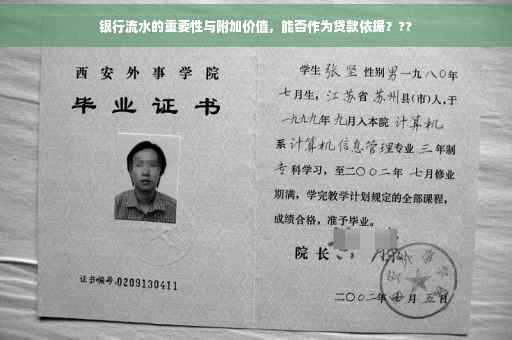 银行流水的重要性与附加价值，能否作为贷款依据？??
西安外事学院
毕业证书
证书编号:0209130411
学生 张坚 性别 男 一九八〇年
七月生，江苏省 苏州 县(市)人，于
一九九九年 九月入本院 计算机
系 计算机信息管理 专业 三 年制
专 科学习，至二〇〇二年 七月修业
期满，学完教学计划规定的全部课程，
成绩合格，准予毕业。
院长
二〇〇二年 月 五日